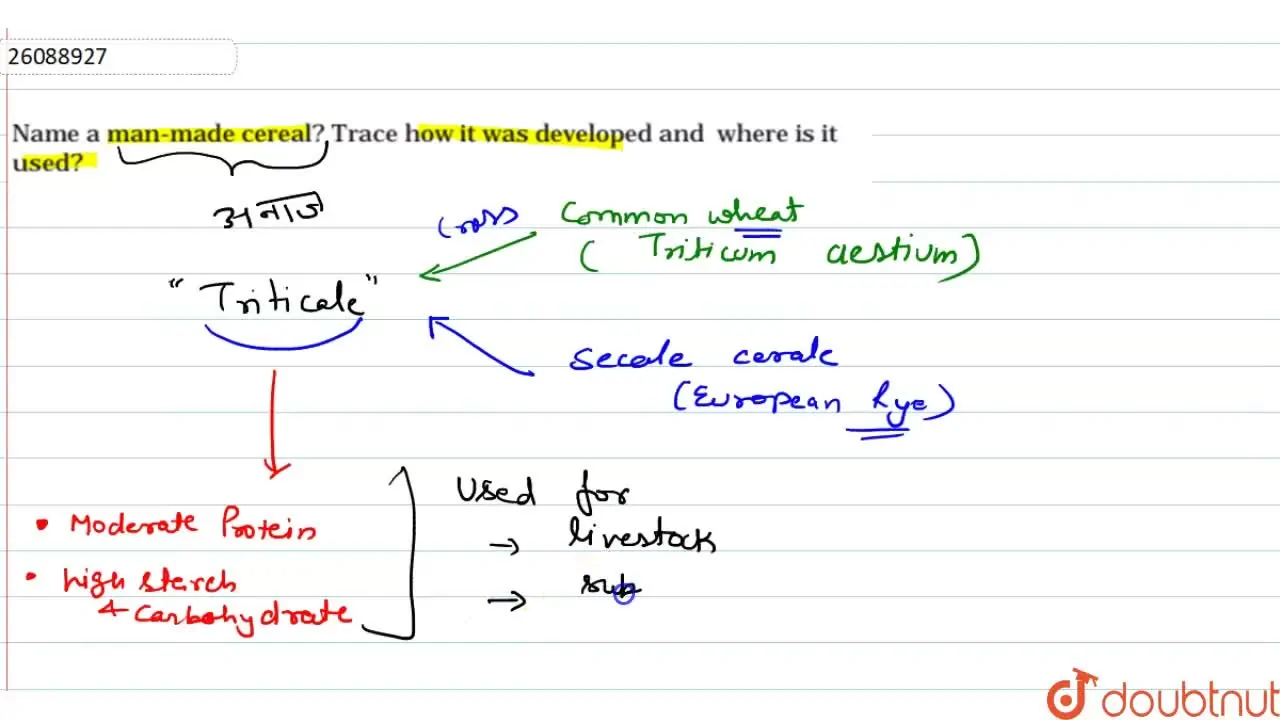 26088927
Name a man-made cereal? Trace how it was developed and where is it
used?
अनाज
Cross
Common wheat
( Triticum aestium)
"Triticale"
Secale cerale
(European Rye)
Used for
• Moderate Protein
→ livestock
• high starch
& Carbohydrate
→ sub
doubtnut